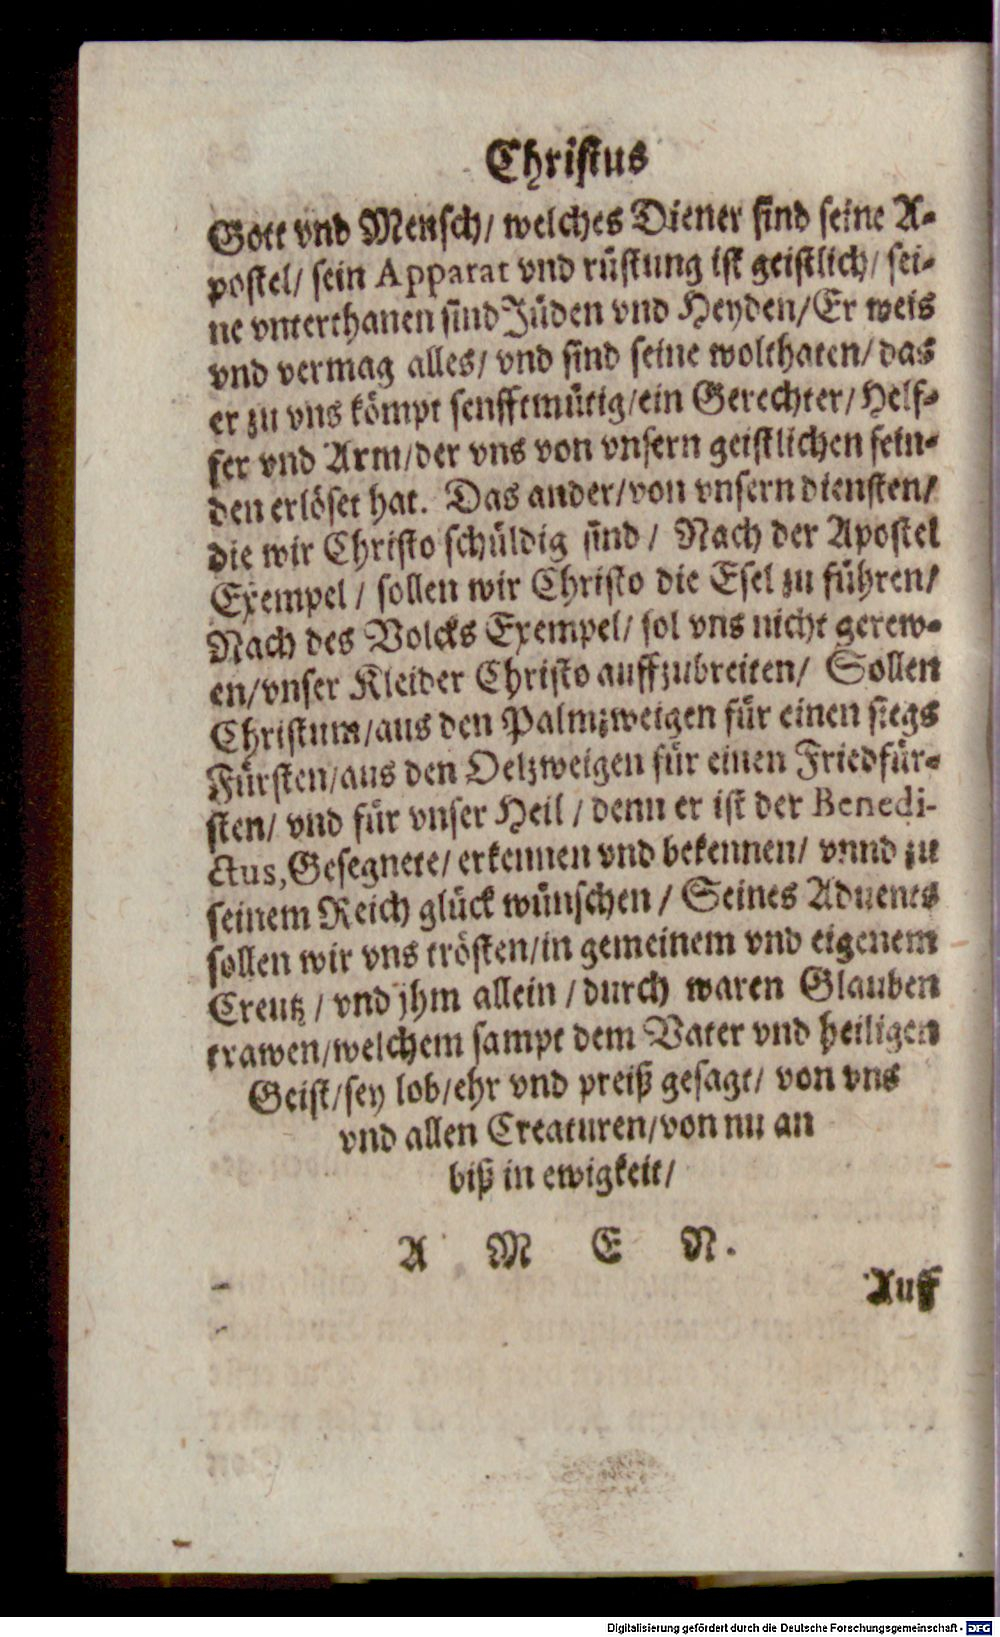 Christus
Gott vnd Mensch/ welches Diener sind seine A-
postel/ sein Apparat vnd rüstung ist geistlich/ sei-
ne vnterthanen sind Jüden vnd Heyden/ Er weis
vnd vermag alles/ vnd sind seine wolthaten/ das
er zu vns kömpt senfftmütig/ ein Gerechter/ Helf-
fer vnd Arm/ der vns von vnsern geistlichen fein-
den erlöset hat. Das ander/ von vnsern diensten/
die wir Christo schüldig sind / Nach der Apostel
Exempel / sollen wir Christo die Esel zu führen/
Nach des Volcks Exempel/ sol vns nicht gerew-
en/ vnser Kleider Christo auffzubreiten/ Sollen
Christum/ aus den Palmzweigen für einen siegs
Fürsten/ aus den Oelzweigen für einen Friedfür-
sten/ vnd für vnser Heil / denn er ist der Benedi-
ctus, Gesegnete/ erkennen vnd bekennen/ vnnd zu
seinem Reich glück wünschen / Seines Aduents
sollen wir vns trösten/ in gemeinem vnd eigenem
Creutz / vnd jhm allein / durch waren Glauben
trawen/ welchem sampt dem Vater vnd heiligen
Geist/ sey lob/ ehr vnd preiß gesagt/ von vns
vnd allen Creaturen/ von nu an
biß in ewigkeit/
A M E N.
Auff
Digitalisierung gefördert durch die Deutsche Forschungsgemeinschaft - DFG